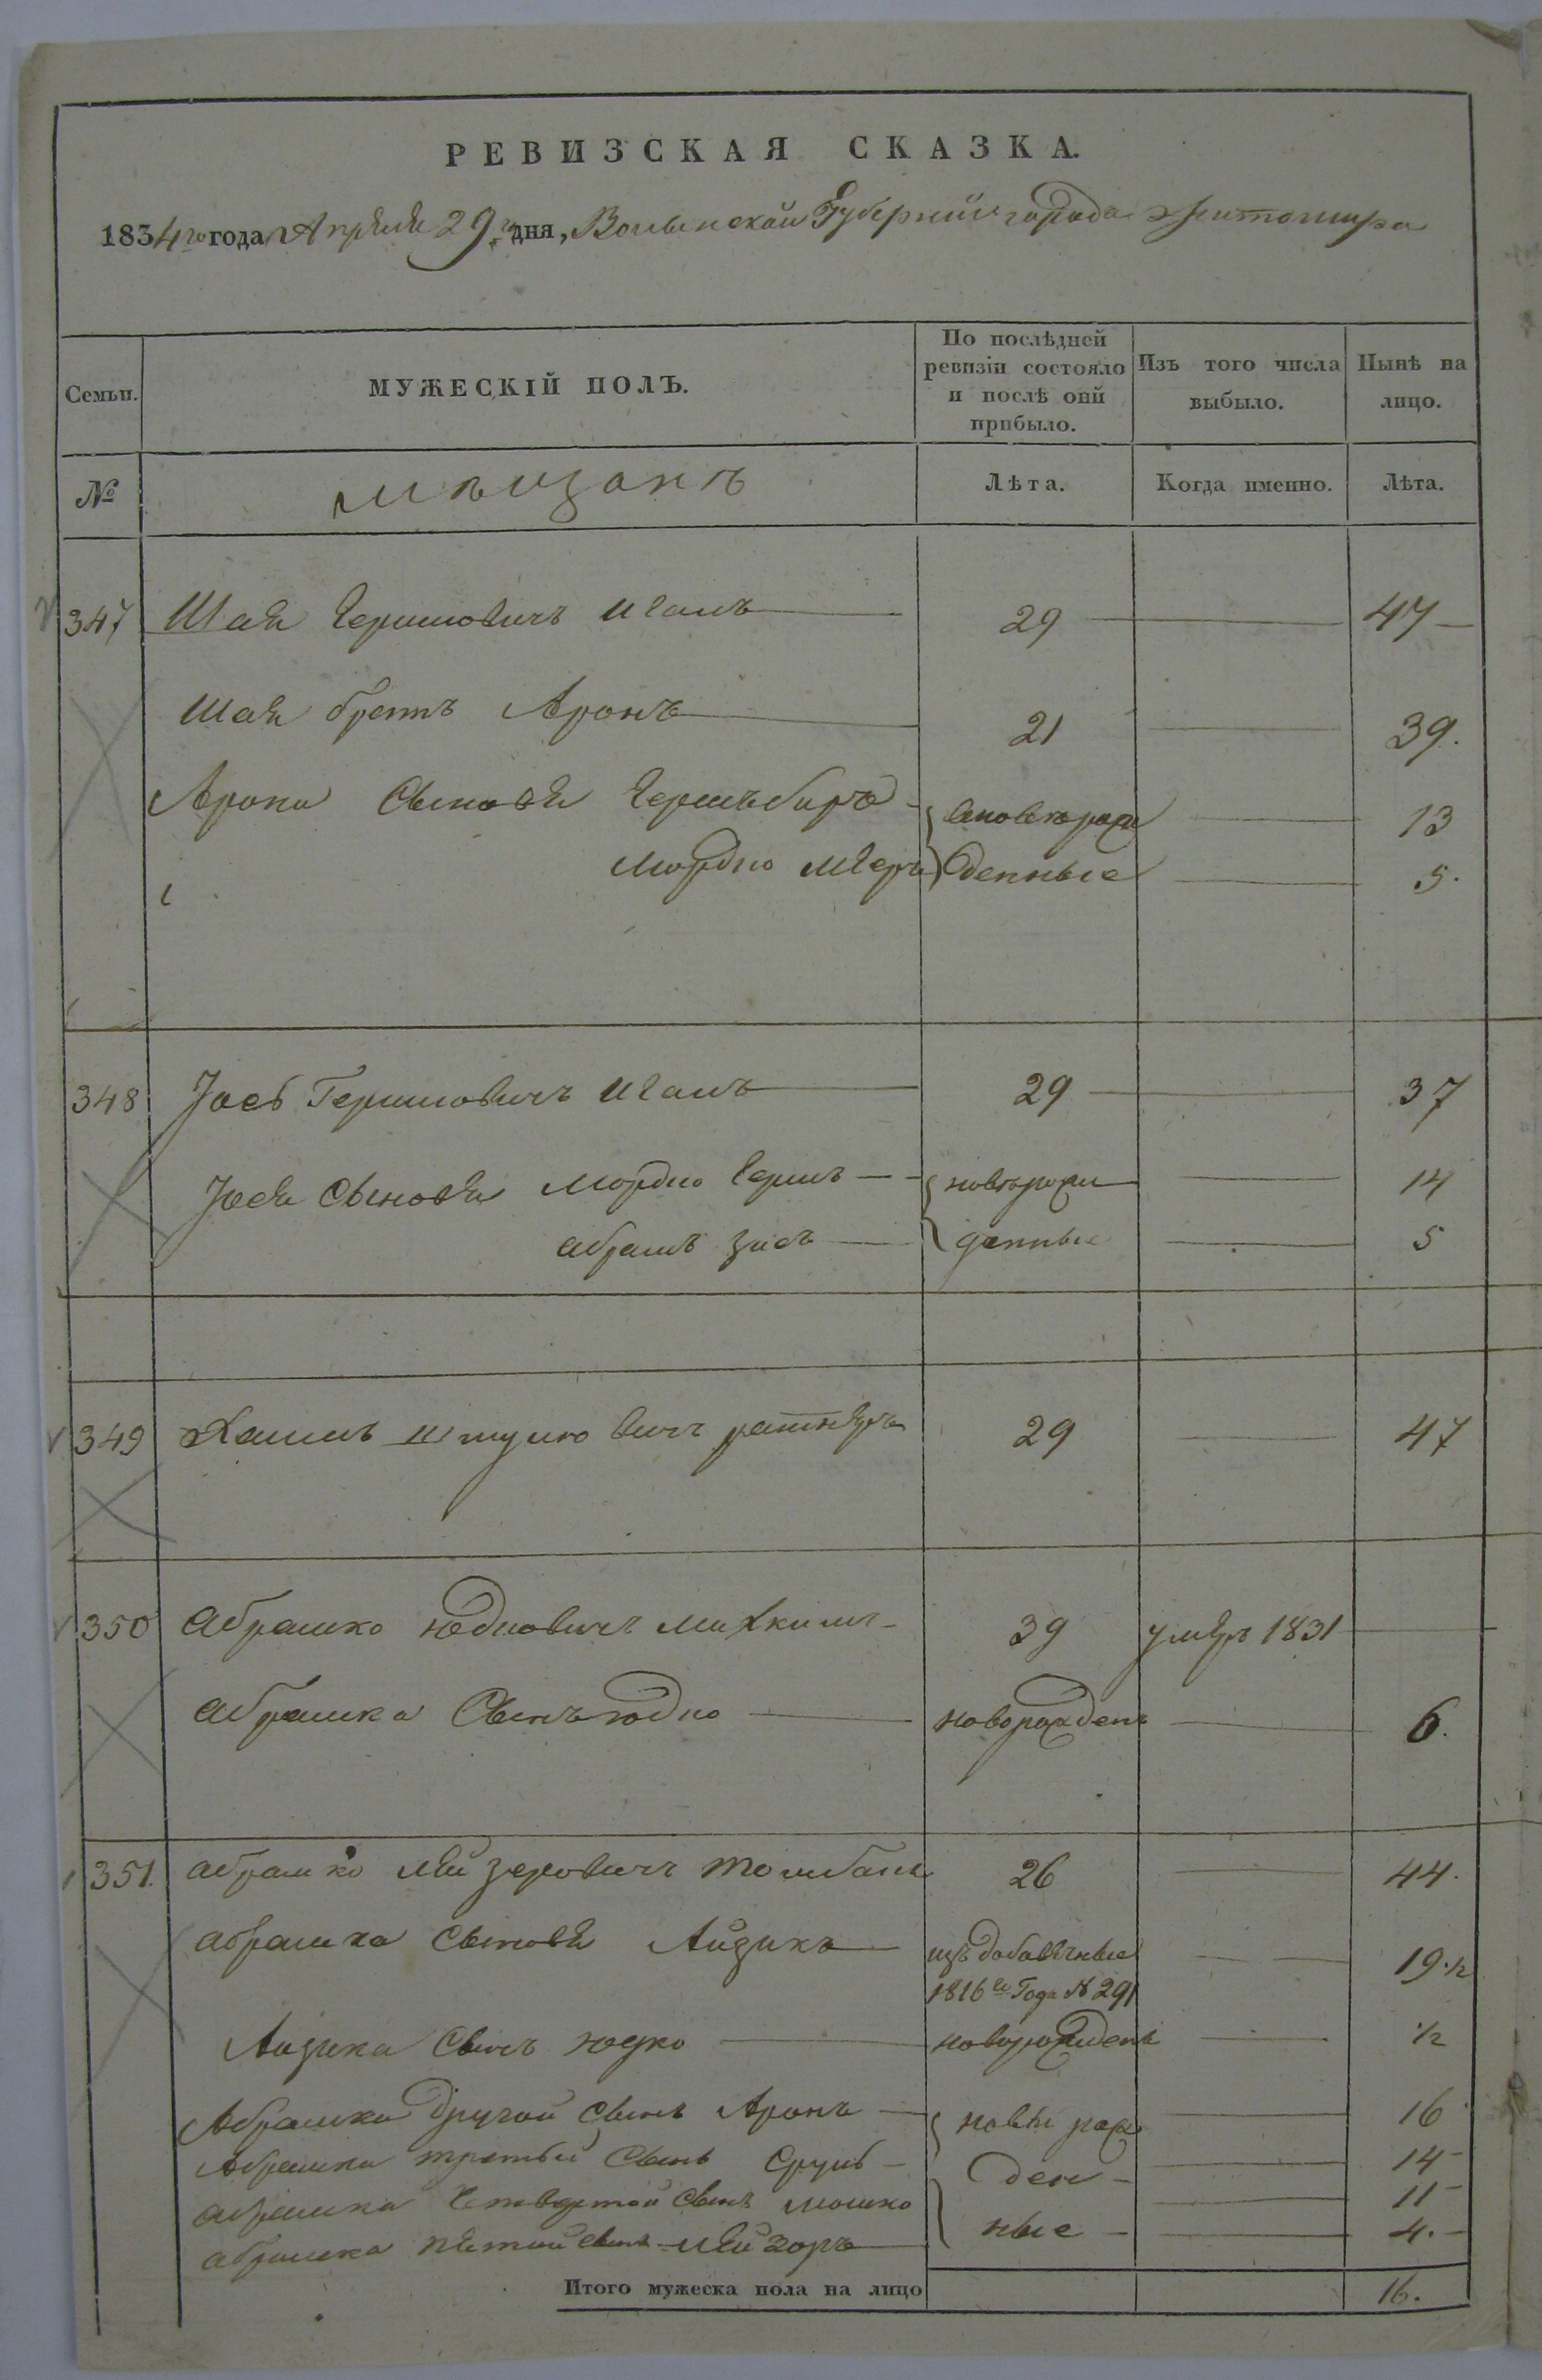 РЕВИЗСКАЯ СКАЗКА.
1834го года Апреля 29го дня, Волынской Губернии города Житомира
Семьи. МУЖЕСКІЙ ПОЛЪ. По послѣдней ревизіи состояло и послѣ оной прибыло. Изъ того числа выбыло. Нынѣ на лицо.
№ мѣщанъ Лѣта. Когда именно. Лѣта.
347 Шая Гершовичъ 29 47
Шаи братъ Аронъ 21 39.
Арона Сыновя Гершъ Беръ 13
Мордко Меръ 5.
348 Іось Гершовичъ 29 37
Іося Сыновя Мордко Гершъ новорож 14
Абрамъ Зись денные 5
349 Хаимъ Шмулювичъ 29 47
350 Абрамко Юдковичъ 39 умеръ 1831
Абрамка Сынъ Юдко новорожденъ 6.
351. Абрамко Лейзеровичъ 26 44.
Абрамка Сыновя Айзикъ изъ добавочные 19.½
1816го Года № 291
Айзика Сынъ Юдко новорожденъ ½
Абрамка другой Сынъ Аронъ новы рож 16
Абрамка третьи Сынъ Сруль ден 14
Абрамка Четвертой Сынъ Мошко 11
Абрамка пятой Сынъ Лейзоръ ные 4.
Итого мужеска пола на лицо 16.